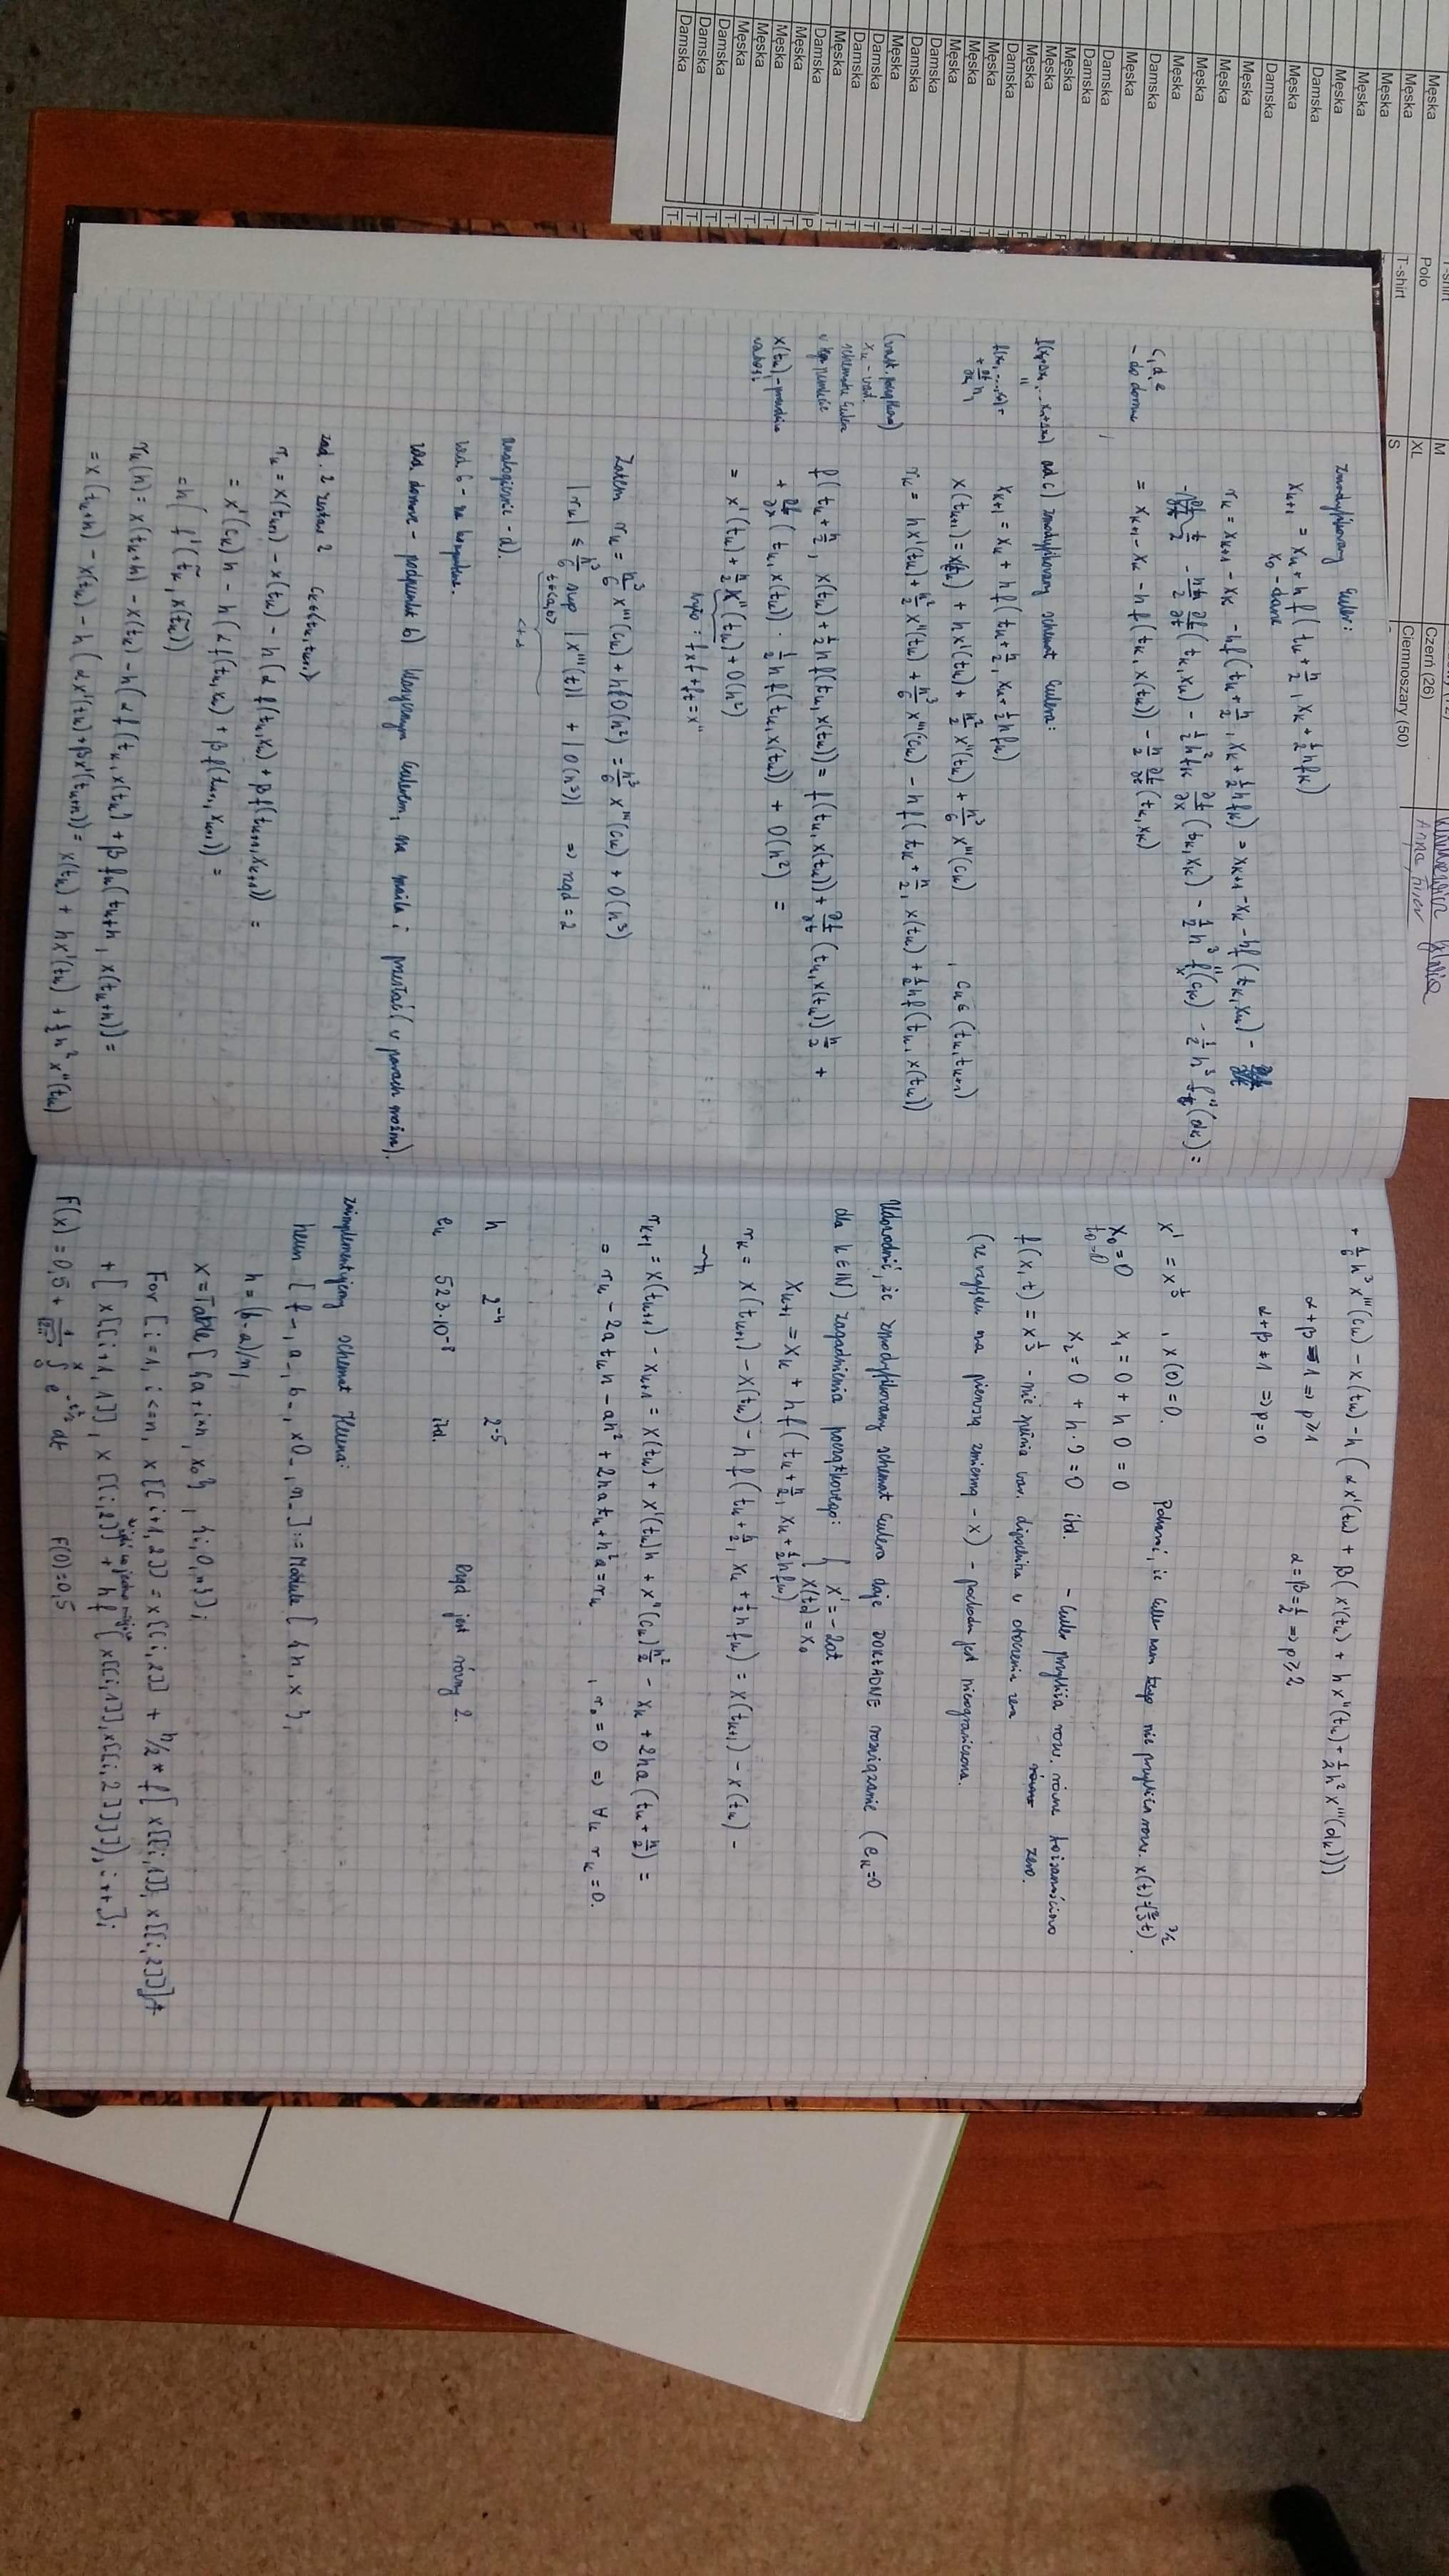 T-shirt M
Męska Polo XL Czerń (26)
Męska T-shirt S Ciemnoszary (50)
Męska
Męska
Męska
Damska
Męska
Damska
Męska
Męska
Męska
Męska
Damska
Męska
Damska
Damska
Męska
Męska
Męska
Damska
Męska
Męska
Męska
Damska
Damska
Męska
Damska
Damska
Męska
Damska
Męska
Męska
Męska
Męska
Damska
Damska
Damska
Zmodyfikowany Euler:
x_{k+1} = x_k + h f( t_k + h/2 , x_k + 1/2 h f_k)
x_0 - dane
r_k = x_{k+1} - x_k - hf( t_k + h/2 , x_k + 1/2 h f_k) = x_{k+1} - x_k - hf( t_k, x_k) -
- h h/2 ∂f/∂t ( t_k, x_k) - 1/2 h² f_k ∂f/∂x ( t_k, x_k) - 1/2 h³ f''_x (c_k) - 1/2 h³ f''_t (d_k) =
c, d, e
- do domu
= x_{k+1} - x_k - h f( t_k, x(t_k)) - h/2 ∂f/∂t (t_k, x_k)
ad. c) zmodyfikowany schemat Eulera:
x_{k+1} = x_k + h f( t_k + h/2, x_k + 1/2 h f_k)
x(t_{k+1}) = x(t_k) + h x'(t_k) + h²/2 x''(t_k) + h³/6 x'''(c_k) , c_k ∈ (t_k, t_{k+1})
r_k = h x'(t_k) + h²/2 x''(t_k) + h³/6 x'''(c_k) - h f( t_k + h/2, x(t_k) + 1/2 h f( t_k, x(t_k))
(wart. początkowa)
x_k - wart.
schematu Eulera
w tym punkcie
x(t_k) - prawdziwa
wartość
f( t_k + h/2, x(t_k) + 1/2 h f(t_k, x(t_k)) = f(t_k, x(t_k)) + ∂f/∂t (t_k, x(t_k)) h/2 +
+ ∂f/∂x ( t_k, x(t_k)) · 1/2 h f(t_k, x(t_k)) + O(h²) =
= x'(t_k) + h/2 x''(t_k) + O(h²)
było : f_x f + f_t = x''
Zatem r_k = h³/6 x'''(c_k) + h O(h²) = h³/6 x'''(c_k) + O(h³)
|r_k| ≤ h³/6 sup |x'''(t)| + |O(h³)| => rząd = 2
t∈<a,b>
< +∞
analogicznie - d).
zad. 6 - na komputerze.
zad. domowe - podpunkt b) klasycznym Eulerem, na maila i przesłać ( w parach można).
zad. 2 zestaw 2 c_k ∈ (t_k, t_{k+1})
r_k = x(t_{k+1}) - x(t_k) - h (α f(t_k, x_k) + β f(t_{k+1}, x_{k+1})) =
= x'(c_k) h - h (α f(t_k, x_k) + β f(t_{k+1}, x_{k+1})) =
= h( f'( t̃_k, x(t̃_k))
r_k(h) = x(t_k+h) - x(t_k) - h(α f(t_k, x(t_k) + β f_k( t_k+h, x(t_k+h)) =
= x (t_k+h) - x(t_k) - h ( α x'(t_k) + β x'(t_k+h)) = x(t_k) + h x'(t_k) + 1/2 h² x''(t_k)
+ 1/6 h³ x'''(c_k) - x(t_k) - h ( α x'(t_k) + β ( x'(t_k) + h x''(t_k) + 1/2 h² x'''(d_k)))
α + β = 1 => p ≥ 1 α = β = 1/2 => p ≥ 2
α + β ≠ 1 => p = 0
x' = x^{1/3} , x(0) = 0. Pokazać, że Euler nam nie przybliża rozw. x(t) = (2/3 t)^{3/2} .
x_0 = 0 x_1 = 0 + h 0 = 0
t_0 = 0
x_2 = 0 + h · 0 = 0 itd. - Euler przybliża rozw. równe tożsamościowo
zero.
f(x, t) = x^{1/3} - nie spełnia war. Lipschitza w otoczeniu zera
(ze względu na pierwszą zmienną - x) - pochodna jest nieograniczona.
Udowodnić, że zmodyfikowany schemat Eulera daje DOKŁADNE rozwiązanie (e_k = 0
dla k ∈ IN) zagadnienia początkowego: { x' = -2at
x(t_0) = x_0
x_{k+1} = x_k + h f( t_k + h/2, x_k + 1/2 h f_k)
r_k = x(t_{k+1}) - x(t_k) - h f( t_k + h/2, x_k + 1/2 h f_k) = x(t_{k+1}) - x(t_k) -
r_{k+1} = x(t_{k+1}) - x_{k+1} = x(t_k) + x'(t_k) h + x''(c_k) h²/2 - x_k + 2ha (t_k + h/2) =
= r_k - 2a t_k h - ah² + 2ha t_k + h² a = r_k , r_0 = 0 => ∀_k r_k = 0.
h 2^{-4} 2^{-5}
Rząd jest równy 2.
e_k 523·10^{-8} itd.
zaimplementujemy schemat Heuna:
heun [ f_, a_, b_, x0_, n_ ] := Module [ {h, x },
h = (b-a)/n;
x = Table [ {a + i*h, x0} , {i, 0, n}];
For [ i=1, i <= n, x [[i+1, 2]] = x[[i, 2]] + h/2 * f[ x[[i,1]], x[[i,2]]] +
+ [ x[[i+1, 1]], x [[i,2]] + h f [ x[[i,1]], x[[i,2]]]]), i++];
F(x) = 0,5 + 1/√2π ∫_0^x e^{-t²/2} dt F(0) = 0,5